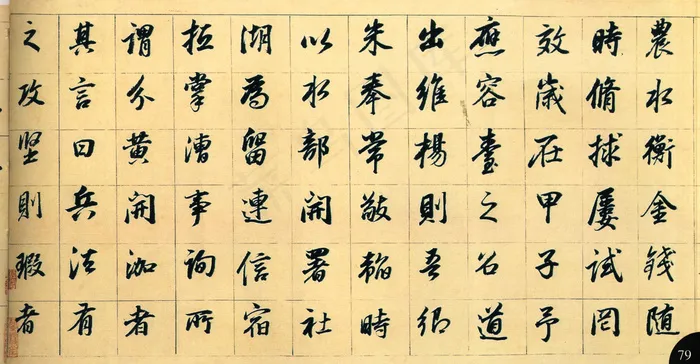 農水衡金錢随
時脩捄屡試罔
效歲在甲子予
應容臺之召道
出維楊則吾鄉
朱奉常敬韜時
以水部開署社
湖為留連信宿
拉掌漕事詢所
謂分黄開泇者
其言曰兵法有
之攻坚則瑕者
79